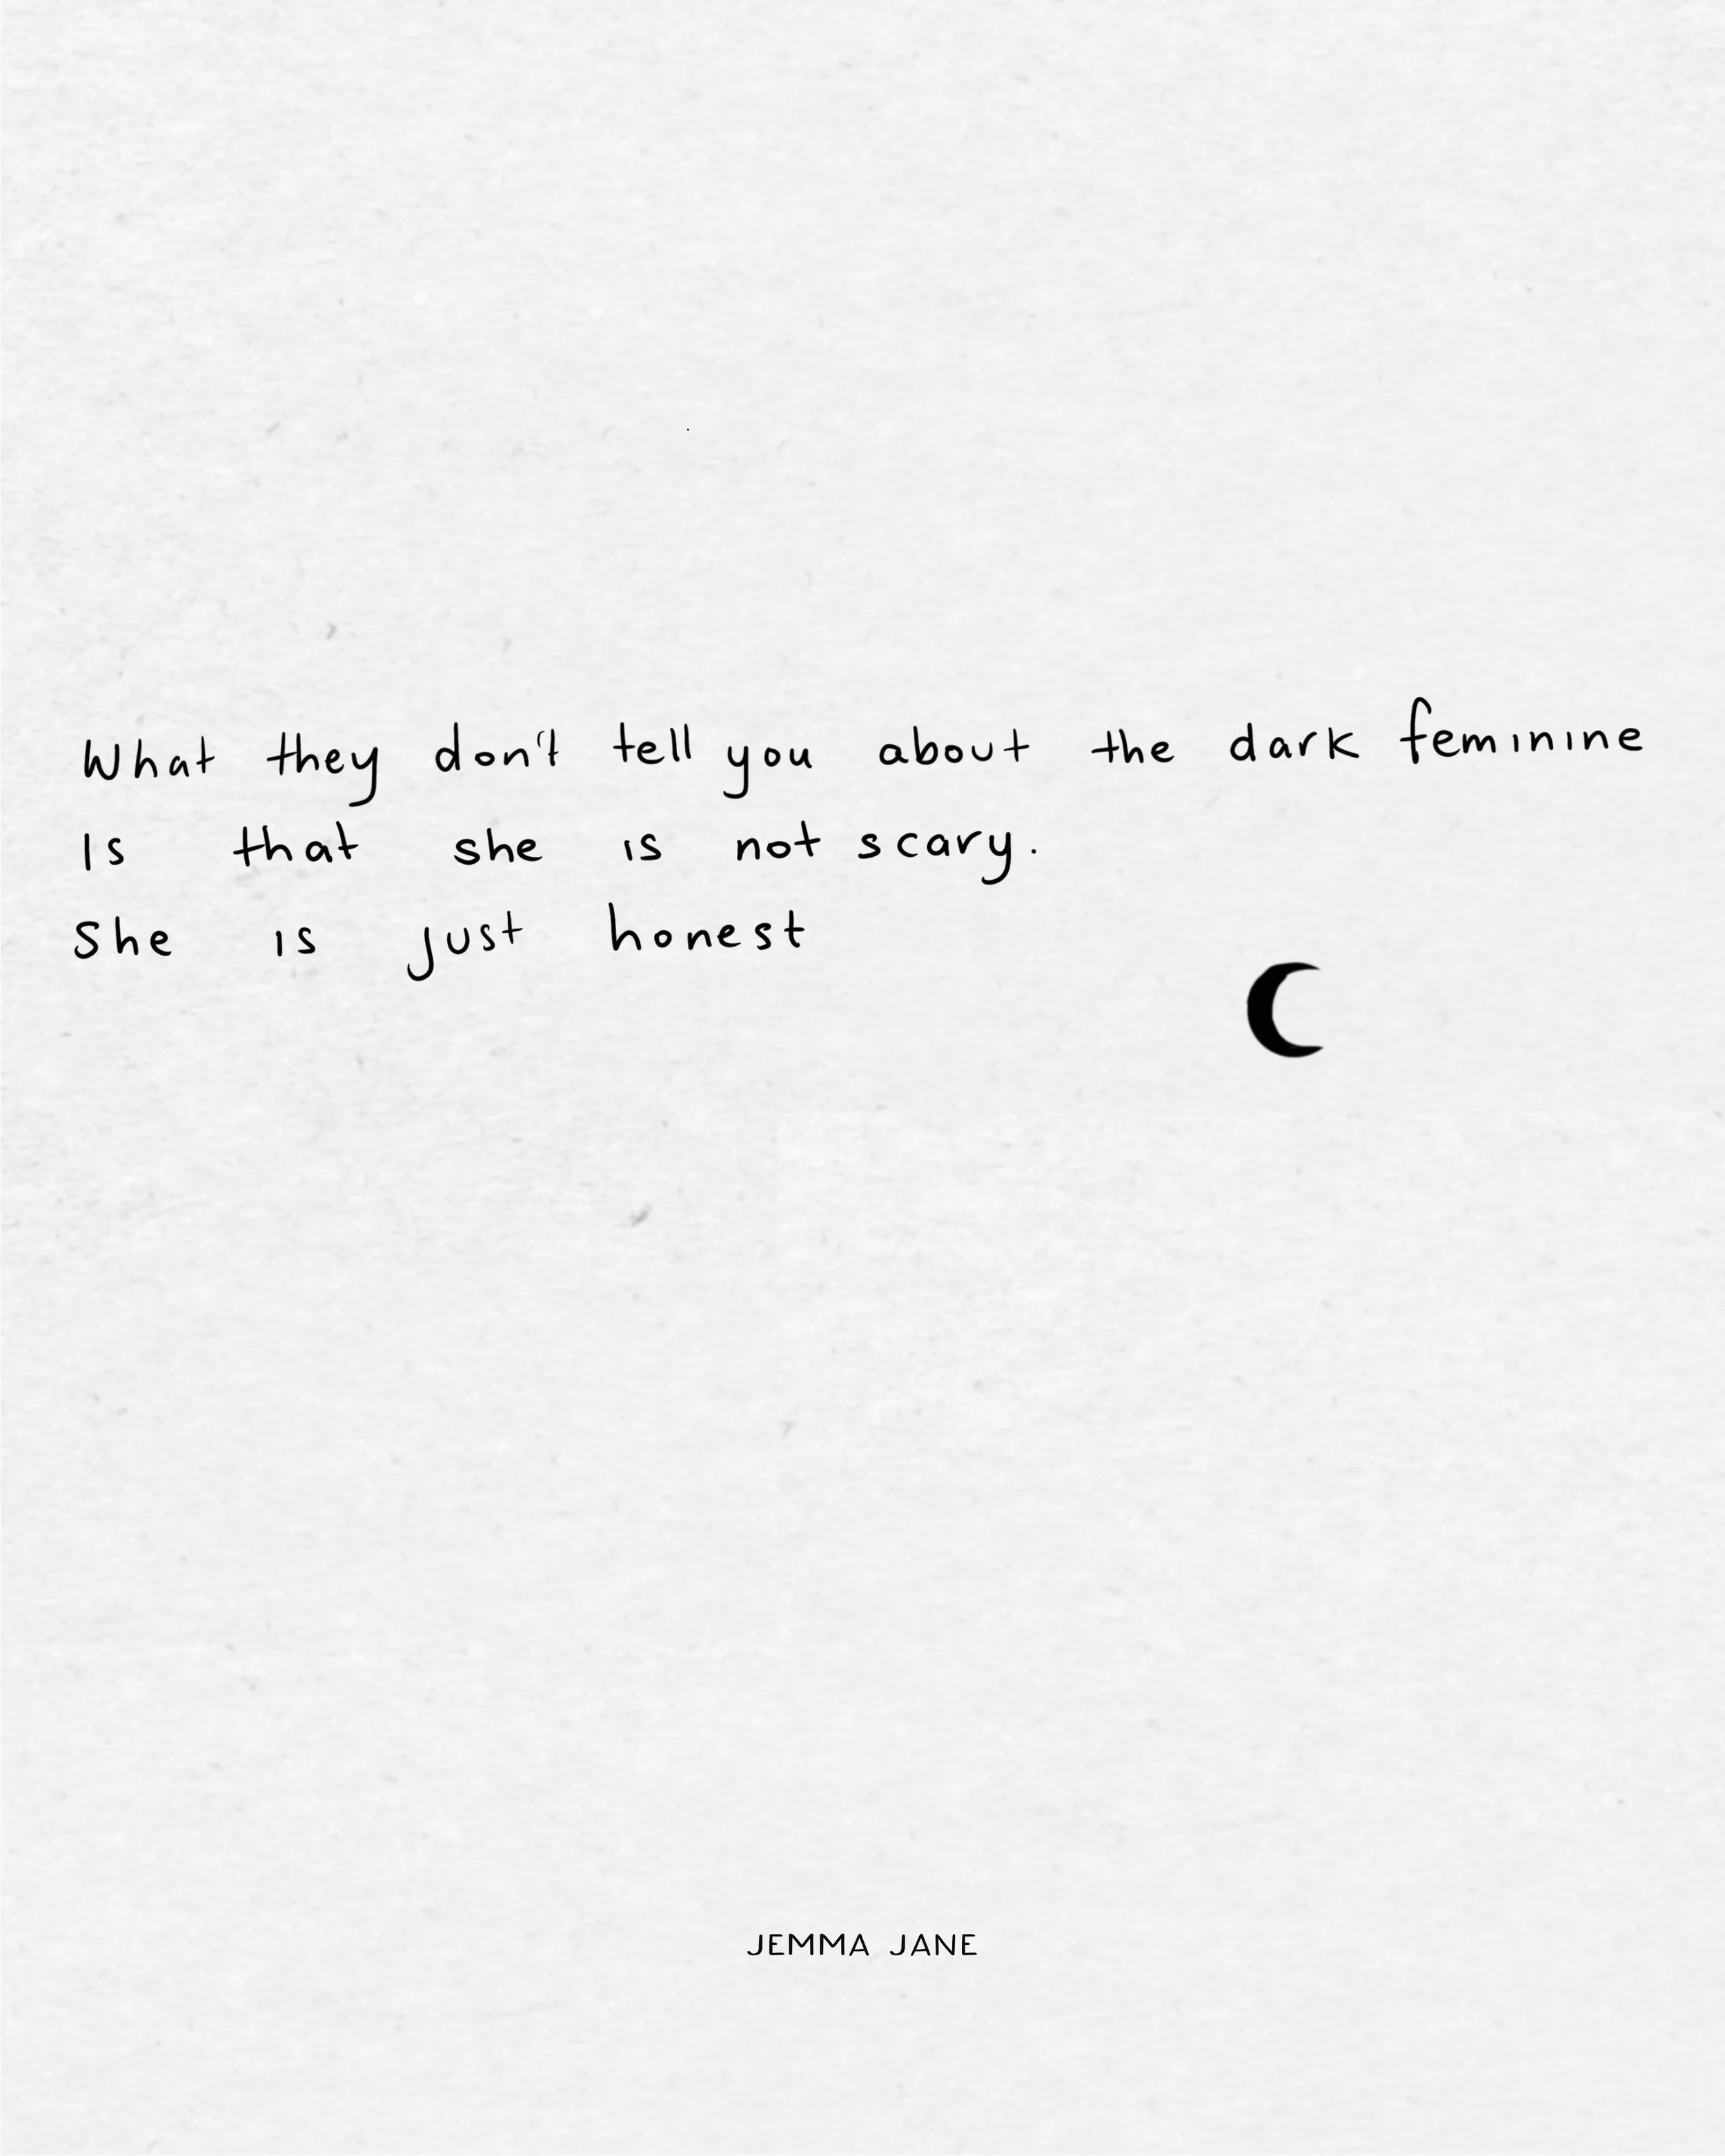 What they don't tell you about the dark feminine
Is that she is not scary.
She is just honest
JEMMA JANE